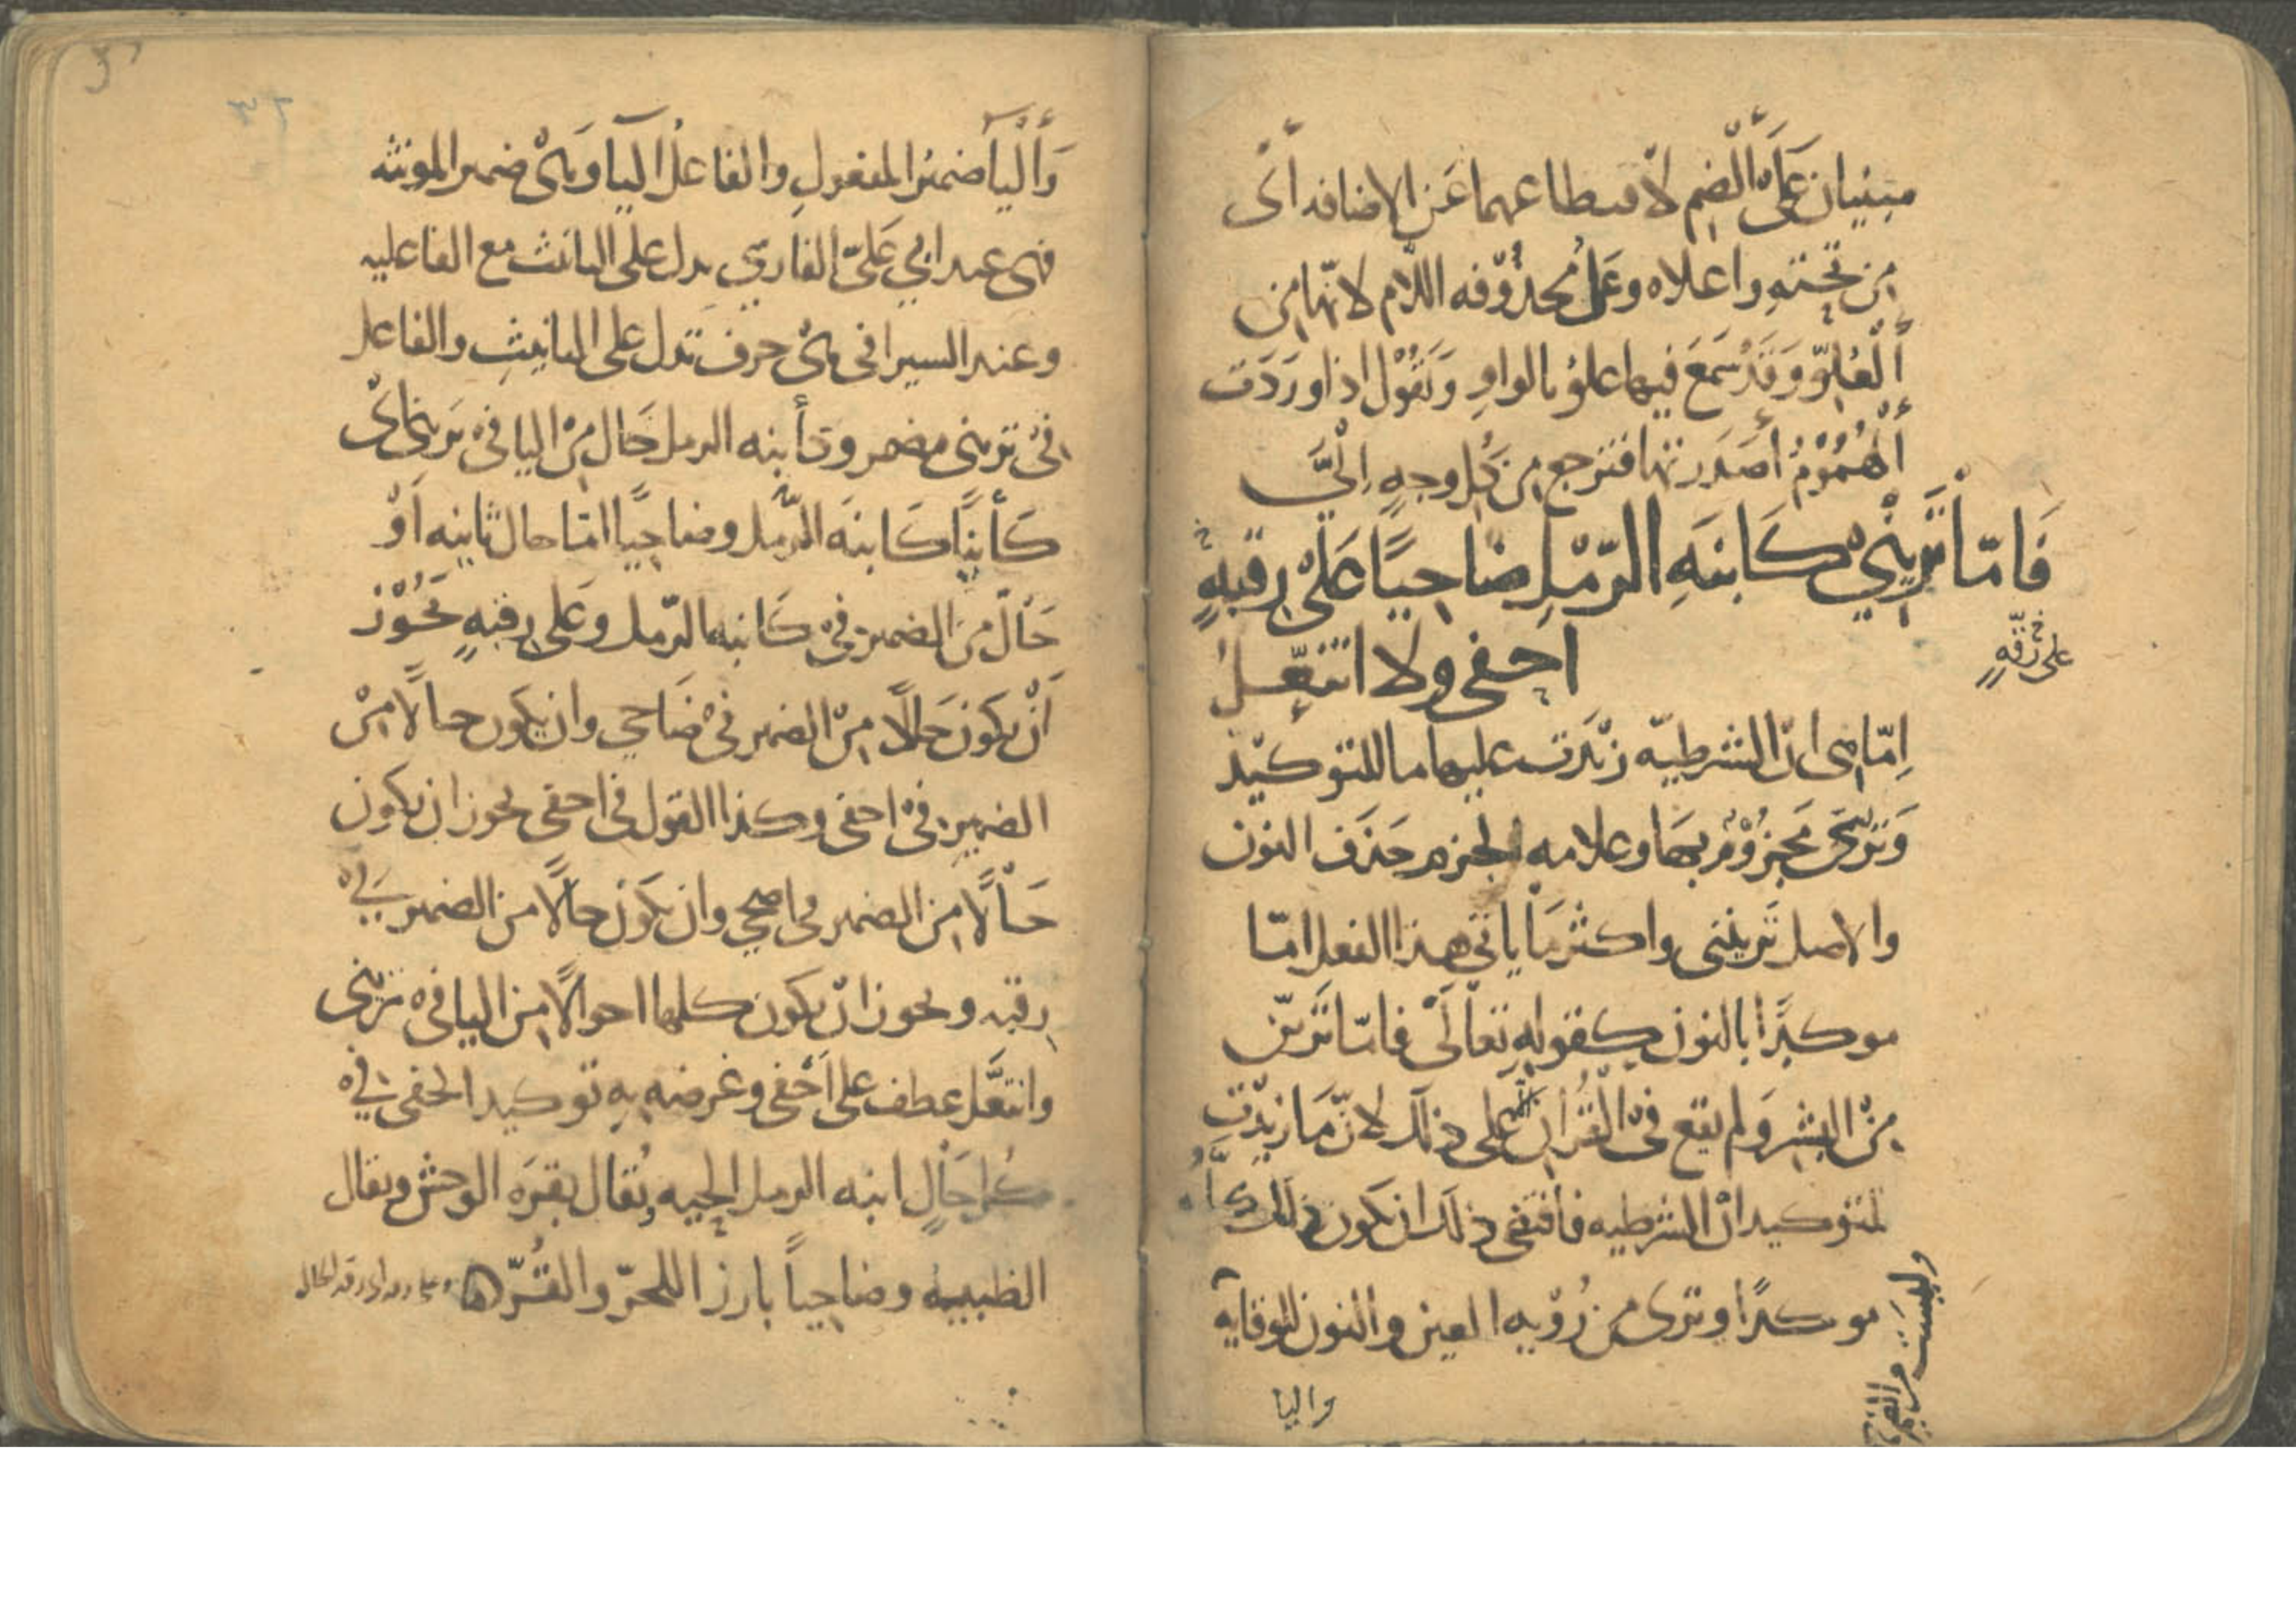 مبنيان على الضم لانقطاعهما عن الاضافه أى
من تحته واعلاه وعل محذوفه اللام لانها من
العلو وقد سمع فيها علو بالواو وتقول اذا وردت
الهموم أصدرتها فترجع من كل وجه الي
فَامّا تَرَيْني كَابنَةِ الرّمْلِ ضَاحِيًا عَلَى رِقّبهٍ
احفى ولا اتنعّلُ
على رقّهٍ
اِمّا هى ان الشرطيه زيدت عليها ما للتوكيد
وترى مجزوم بها وعلامه الجزم حذف النون
والاصل ترينني واكثر ما ياتي هذا الفعل امّا
موكدًا بالنون كقوله تعالى فامّا تَرَينّ
من البشر ولم يقع في القران الا على ذلك لانّ ما زيدت
لتوكيد ان الشرطيه فاقتضى ذلك ان يكون ذلك
موكدًا وترى من رُوْيه العين والنون للوقايه
وليست من
واليا
واليا ضمير المفعول والفاعل اليا وهى ضمير المونثه
فهى عند ابي على الفارسي تدل على التانيث مع الفاعليه
وعند السيرافى هى حرف تدل على التانيث والفاعل
فى ترينى مضمر وكأبنه الرمل حال من اليا فى ترينى اى
كأينًا كَابنَه الرّمل وضاحيًا امّا حال ثانيه اَوْ
حَال من الضمير فى كَابنه الرّمل وعلى رقبهٍ يجوز
اَنْ يكونَ حَالًا من الضمير فى ضَاحي وان يكون حالًا مِنْ
الضمير فى احفى وكذا القول فى احفى يجوز ان يكون
حَالًا من الضمير فى اضحي وان يكون حالًا من الضمير في
رقبه ويجوز انْ يكون كلها احوالًا من اليا فى ترينى
واتنعّل عطف على اَحْفى وغرضه به توكيد الحفى فى
كُل حَالٍ ابنه الرمل الحيه ويُقال بقرَه الوحش ويقال
الظبيه وضاحياً بارزا للحرّ والقُرّ